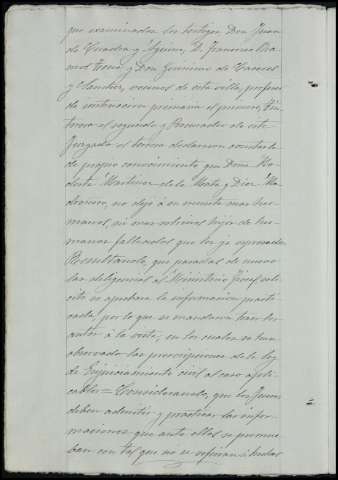 que examinados los testigos, Don Juan
de y Aguirre, D. Francisco Ra-
mos y Don Gerónimo de
y Sanchez, vecinos de esta villa, profesor
de instruccion primaria el primero,
el segundo y Procurador de este
Juzgado el tercero declararon constarles
de propio conocimiento que Doña Mo-
desta Martinez de la Mata y Diaz Ma-
droñero, no dejó á su muerte mas her-
manos, ni mas sobrinos hijos de her-
manos fallecidos que los ya espresados
Resultando, que pasadas de nuevo
las diligencias al Ministerio fiscal soli-
cita se apruebe la informacion practi-
cada, por lo que se mandaron traer los
autos á la vista, en los cuales se han
observado las prescripciones de la ley
de Enjuiciamiento civil al caso apli-
cables = Considerando, que los Jueces
deben admitir y practicar las infor-
maciones que ante ellos se promue-
ban con tal que no se refieran á hechos